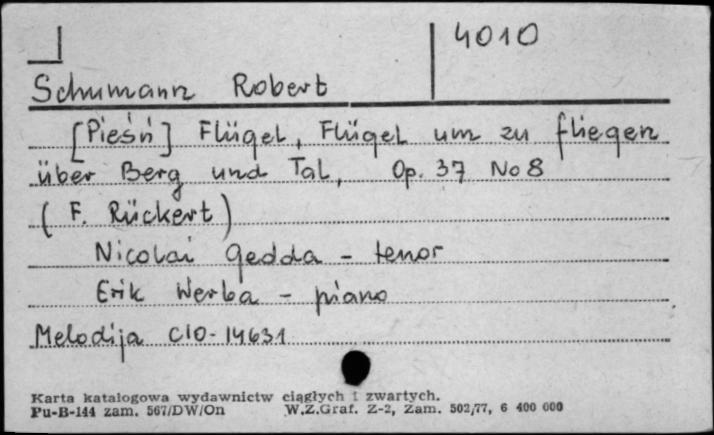 4010
Schumann Robert
[Pieśń] Flügel, Flügel um zu fliegen
über Berg und Tal, Op. 37 No 8
( F. Rückert )
Nicolai Gedda - tenor
Erik Werba - piano
Melodija C10-14631
Karta katalogowa wydawnictw ciągłych i zwartych.
Pu-B-144 zam. 567/DW/On W.Z.Graf. Z-2, Zam. 502/77, 6 400 000